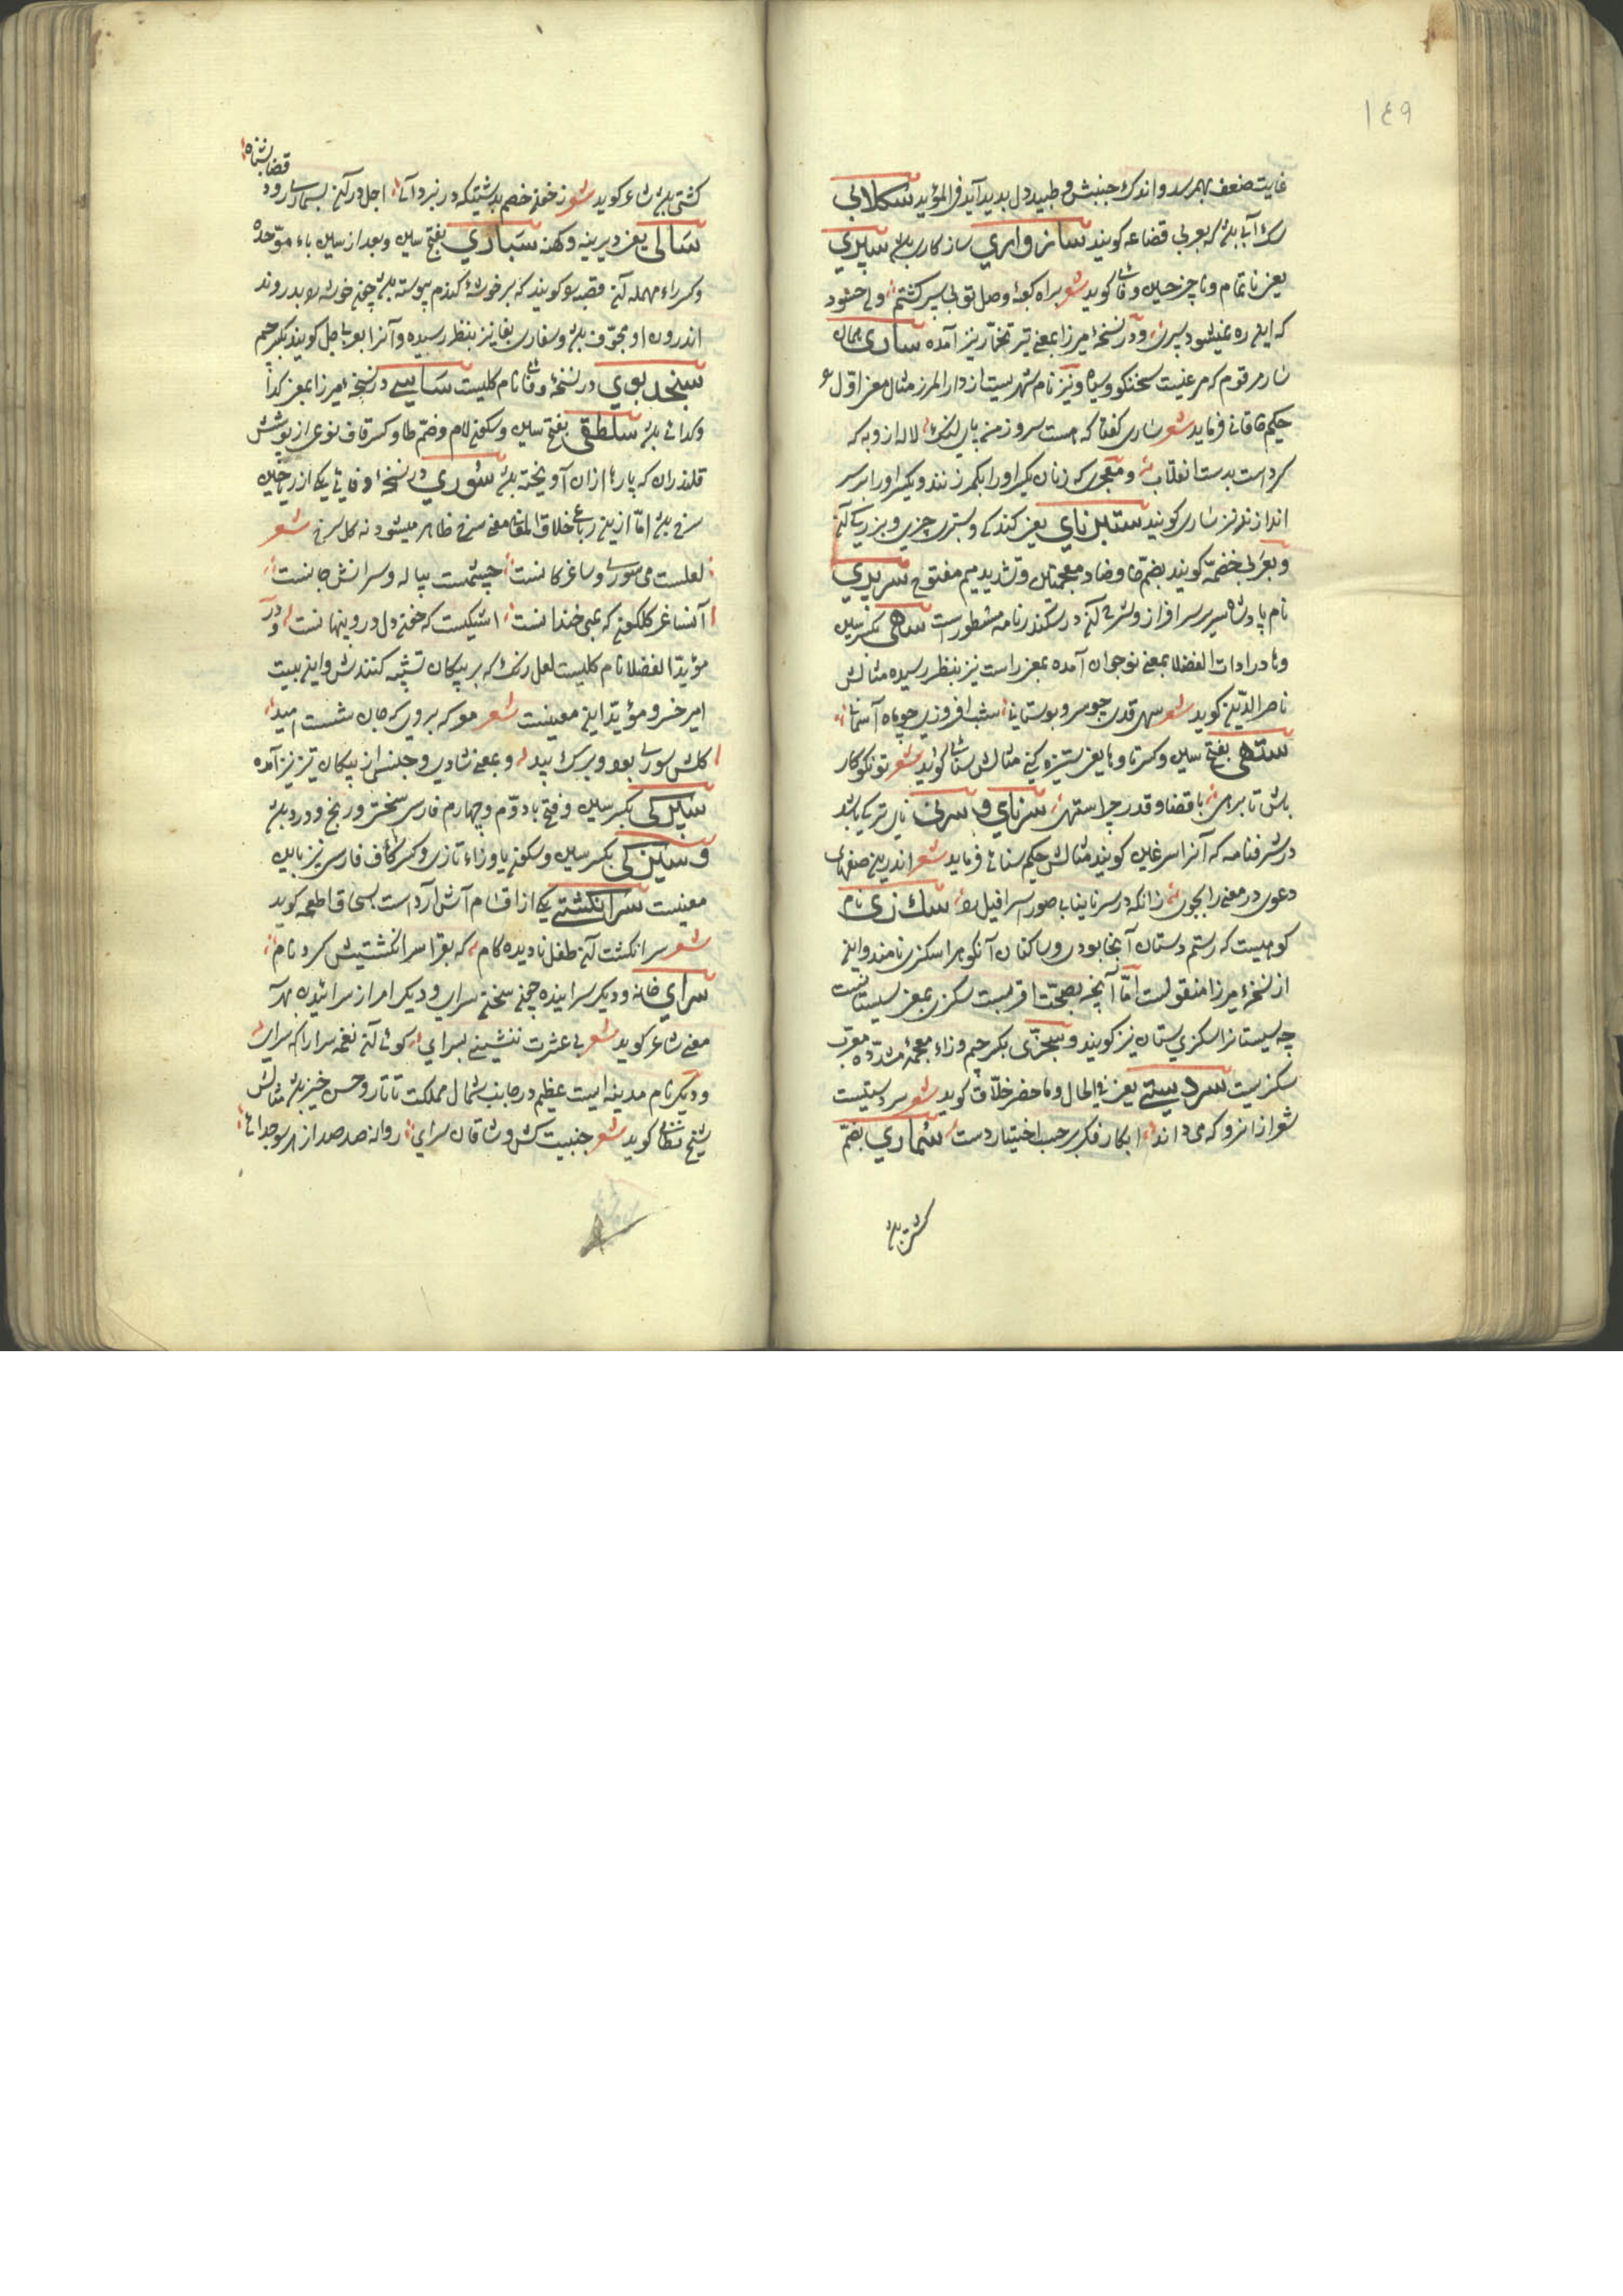 ١٤٩
غایت ضعف بهم رسد و اندک جنبش و طپیدن دل پدید آید فی المؤید سکلابی
سگ آبی باشد که بعربی قضاعه گویند سازواری سازگاری باشد سپری
یعنی ناتمام و ناچیز حسین وفائی گوید شعر براه کعبهٔ وصل تو پی سپر گشتم ولی چه سود
که این ره نمیشود سپری و در نسخهٔ میرزا بمعنی تیر تخمار نیز آمده ساری همان
سار مرقوم که مرغیست سخنگو و سیاه و نیز نام شهریست از دار المرز مثال معنی اول
حکیم خاقانی فرماید شعر ساری گفتا که هست سرو ز من پای لنگ لاله ازو به که
کرد دشت بدشت انقلاب و معجری که زنان یکسر او را بکمر زنند و یکسر او را بر سر
اندازند نیز ساری گویند ستبرنای یعنی گندگی و ستبری چیزی و بزرگی آن
و بعربی خضمّة گویند بضم خا و ضاد معجمتین و تشدید میم مفتوح سریری
نام پادشاه سریر سرافراز و شرح آن در سکندرنامه مسطور است سهی بکسر سین
و ها در ادات الفضلا بمعنی نوجوان آمده بمعنی راست نیز بنظر رسیده مثالش
ناصر الدین گوید شعر سهی قدی چو سرو بوستانی شب افروزی چو ماه آسمانی
ستهی بفتح سین و کسر تا و ها یعنی ستیزه کنی مثالش سنائی گوید شعر تو نکوکار
باش تا برهی با قضا و قدر چرا ستهی سرنای و سرنی نای ترکی باشد
در شرفنامه که آنرا سرغین گویند مثالش حکیم سنائی فرماید شعر اندرین صفهای
دعوی در معنی را بجوی زانکه در سرنا نیابی صور اسرافیل را سکزی نام
کوهیست که رستم دستان آنجا بودی و ساکنان آن کوه را سکزی نامند و این
از نسخهٔ میرزا منقولست امّا آنچه بصحّت اقربست سکزی بمعنی سیستانیست
چه سیستانرا سکزی ستان نیز گویند و سجزّی بکسر جیم و زاء معجمهٔ مشدّده معرّب
سکزیست سردستی یعنی فی الحال و ماحضر خلّاق گوید شعر سردستیست
شعرا ز انرو که می داند ابکار فکر بر حسب اختیار دست سُماری بضمّ
کشتی باشد
کشتی باشد شاعر گوید شعر ز خون خصم بدشتیکه در نبرد آئی اجل در آن بسماری رود
قضا بشناه
سالی یعنی دیرینه و کهنه سَباری بفتح سین و بعد از سین باء موحّده
و کسر راء مهمله آن قصبه گویند که بر خوشهٔ گندم پیوسته باشد چون خوشه را بدروند
اندرون او مجوّف باشد و سفاری بفا نیز بنظر رسیده و آنرا بعربی جل گویند بکسر جیم
سنجد بوی در نسخهٔ وفائی نام گلیست ساسی در نسخهٔ میرزا بمعنی گدا
و گدائی باشد سلطقی بفتح سین و سکون لام و ضمّ طا و کسر قاف نوعی از پوشش
قلندران که پارها از ان آویخته باشد سُوری در نسخهٔ وفائی یکی از ریاحین
سرخ باشد امّا ازین رباعی خلاق المعانی معنی سرخ ظاهر میشود نه گل سرخ شعر
لعلست می سوری و ساغر کانست چیشمست پیاله و سرانش جانست
آن ساغر گلگون که بمی خندانست اشکیست که خون دل درو پنهانست و در
مؤید الفضلا نام گلیست لعل رنگ که به پیکان تشبیه کنندش و این بیت
امیر خسرو مؤید این معنیست شعر موکه بروی که جان شست امید
گلش سوری بود و برگ بید و بمعنی شادی و جنسی از پیکان تیر نیز آمده
سیرکی بکسر سین و فتح باء دوّم و چهارم فارسی سختی و رنج و درد باشد
و سیزکی بکسر سین و سکون یا و زاء تازی و کسر کاف فارسی نیز باین
معنیست سرانگشتی یکی از اقسام آش آرد است بسحاق اطعمه گوید
شعر سر انگشت آن طفل نادیده کام که بقرا سرانگشتیش کرد نام
سرای خانه و دیگر سراینده چون سخن سرای و دیگر امر از سرائیدن بهر
معنی شاعر گوید شعر بی عشرت ننشینی بسرای گوئی آن نغمه سرا را که سرای
و دیگر نام مدینه ایست عظیم در جانب شمال مملکت تاتار و حسن خیز باشد مثالش
شیخ نظامی گوید شعر جنیبت کش وشاقان سرائی روانه صد صد از هر سو جدائی